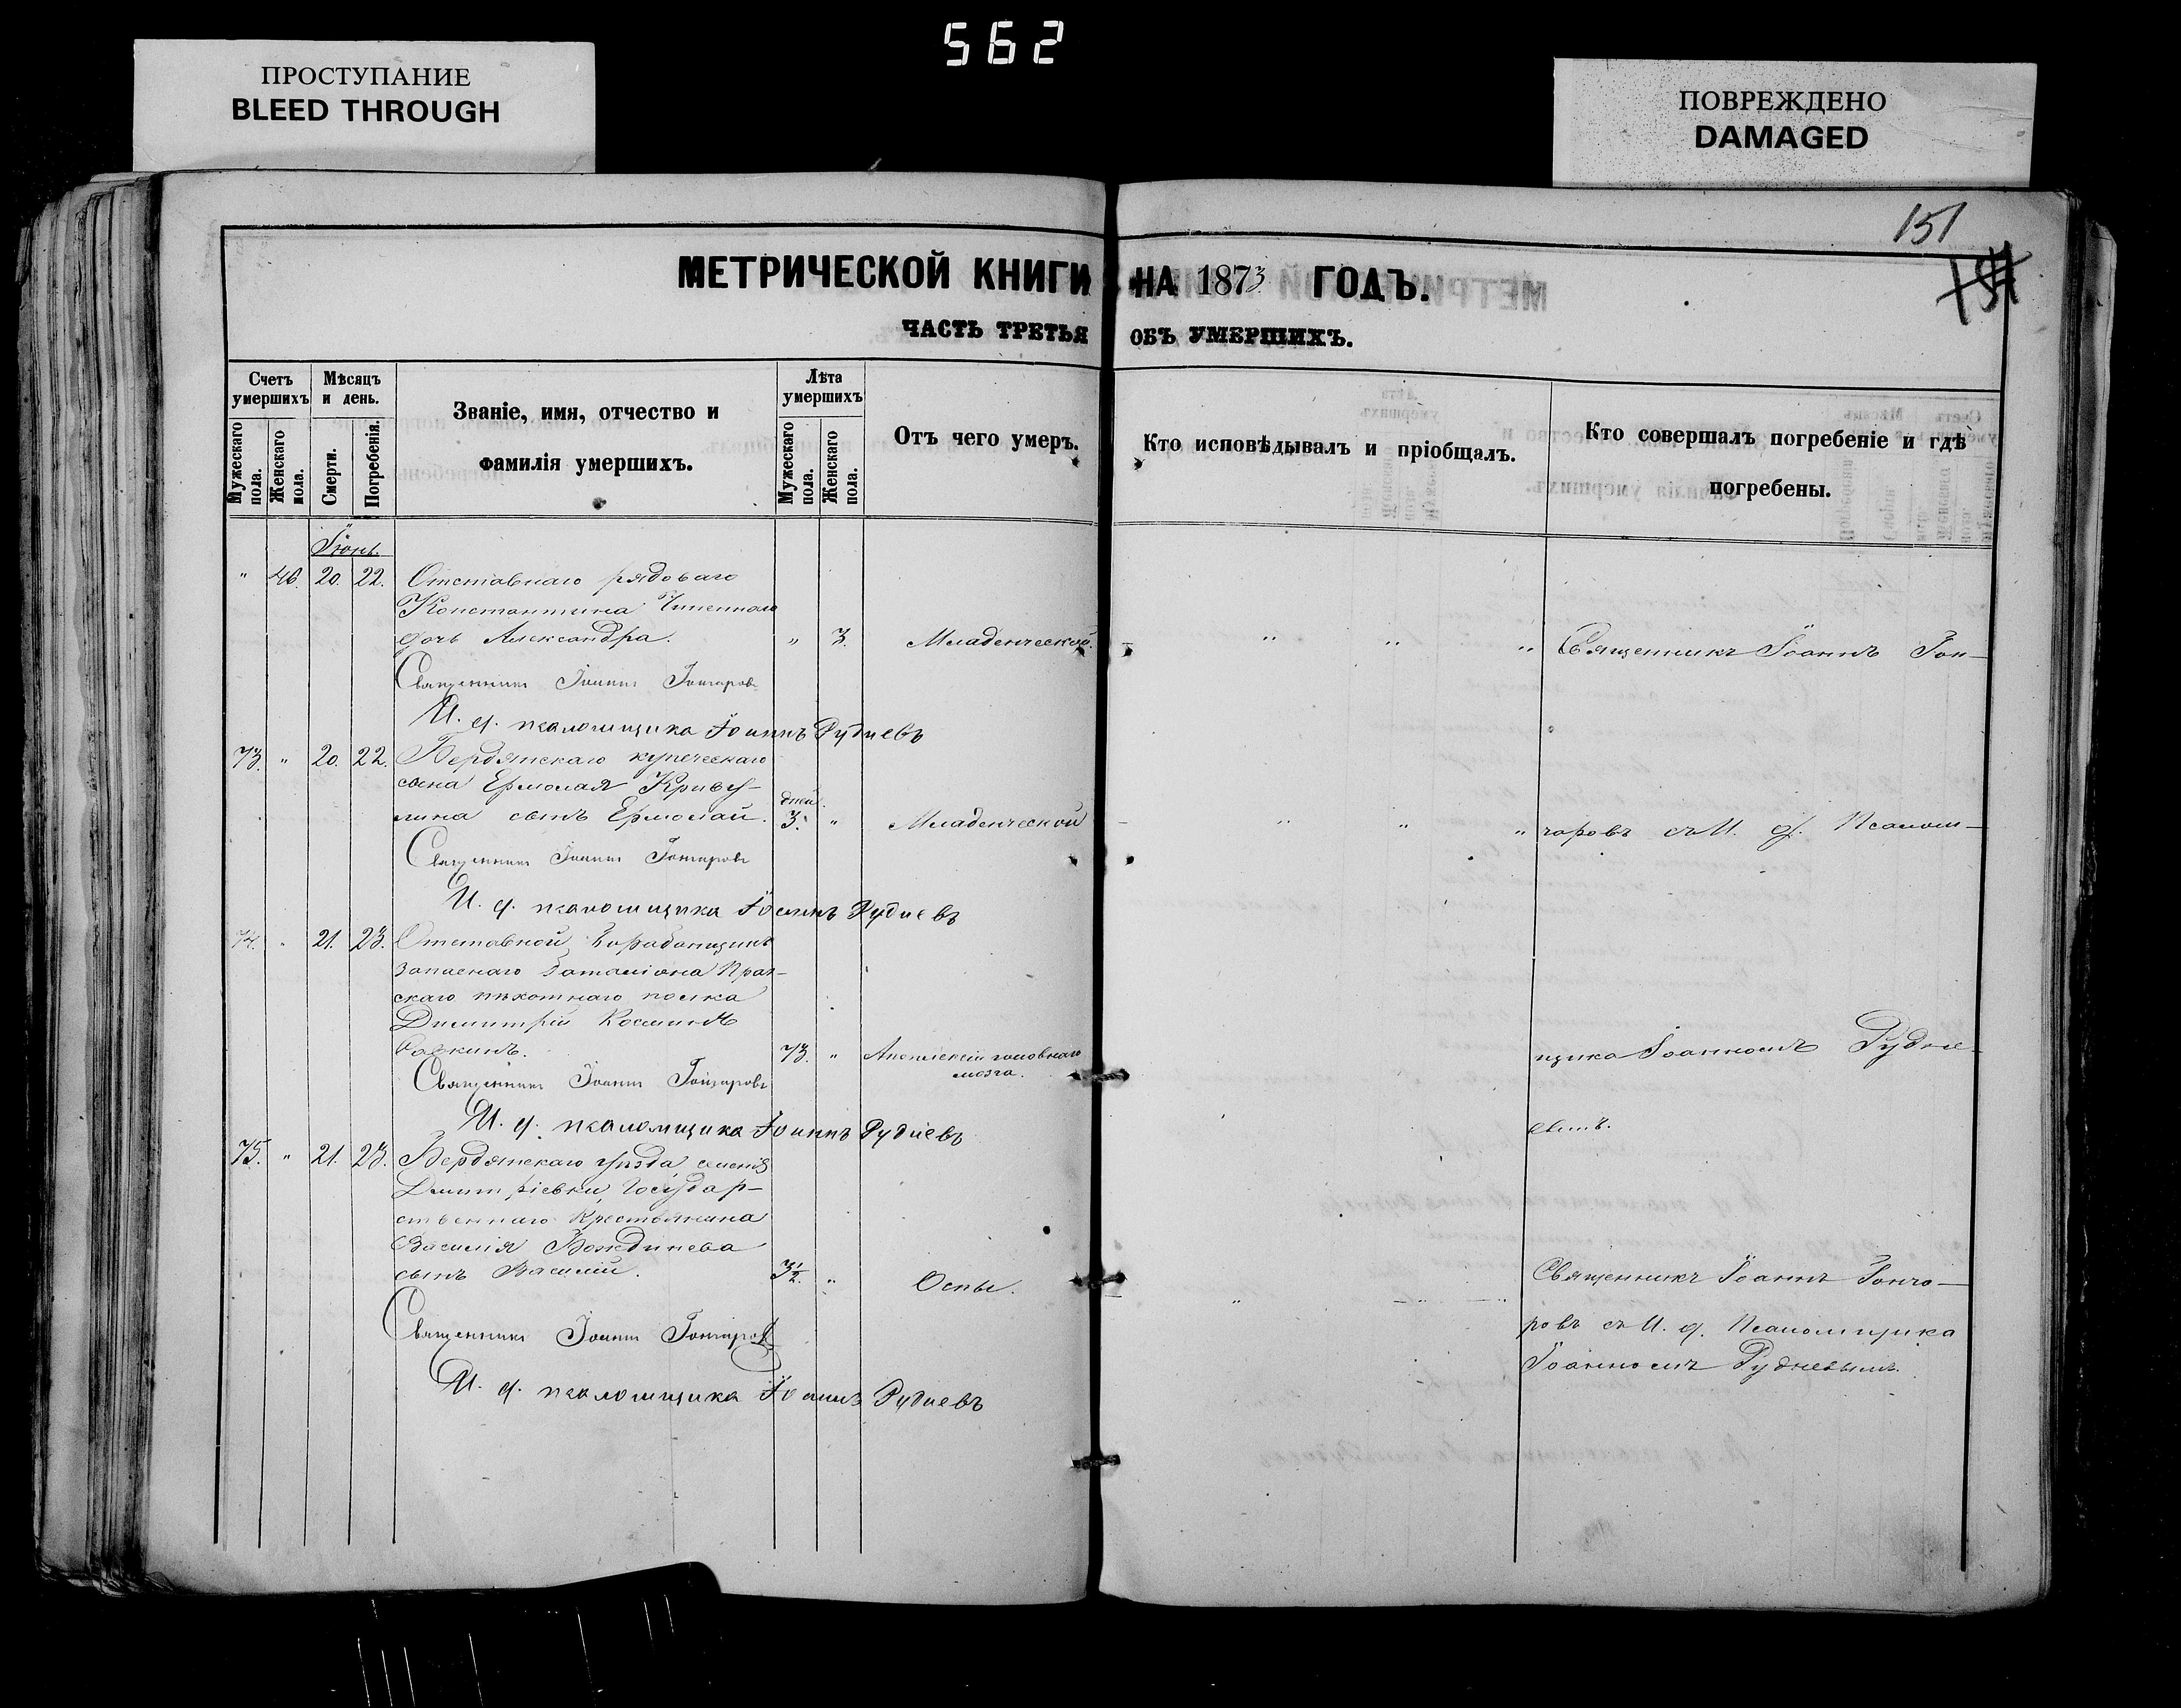 562
ПРОСТУПАНИЕ
BLEED THROUGH
ПОВРЕЖДЕНО
DAMAGED
151
МЕТРИЧЕСКОЙ КНИГИ НА 1873 ГОДЪ.
ЧАСТЬ ТРЕТЬЯ ОБЪ УМЕРШИХЪ.
Счетъ умершихъ
Мужескаго пола.
Женскаго пола.
Мѣсяцъ и день.
Смерти.
Погребенія.
Званіе, имя, отчество и
фамилія умершихъ.
Лѣта умершихъ
Мужескаго пола.
Женскаго пола.
Отъ чего умеръ.
Кто исповѣдывалъ и пріобщалъ.
Кто совершалъ погребеніе и гдѣ
погребены.
Іюнь.
" 46. 20. 22. Отставнаго рядоваго
Константина
дочь Александра. " 3. Младенческой " " " Священникъ Іоаннъ Гон-
Священникъ Іоаннъ Гончаровъ
И. д. псаломщика Іоаннъ Рудневъ
73. " 20. 22. Бердянскаго купеческаго
сына Ермолая Криву-
дней
лина сынъ Ермолай. 3. " Младенческой " " " чаровъ съ И. д. Псалом-
Священникъ Іоаннъ Гончаровъ
И. д. псаломщика Іоаннъ Рудневъ
74. " 21. 23. Отставной барабанщикъ
запаснаго баталіона Праг-
скаго пѣхотнаго полка
Димитрій Козминъ
73. " Апоплексіи головнаго щика Іоанномъ Рудне-
мозга.
Священникъ Іоаннъ Гончаровъ
И. д. псаломщика Іоаннъ Рудневъ
вымъ.
75. " 21. 23. Бердянскаго уѣзда, селенія
Дмитріевки, Государ-
ственнаго Крестьянина
Василія
сынъ Василій. 3½. " Оспы. " " " Священникъ Іоаннъ Гонча-
Священникъ Іоаннъ Гончаровъ
ровъ съ И. д. Псаломщика
Іоанномъ Рудневымъ.
И. д. псаломщика Іоаннъ Рудневъ